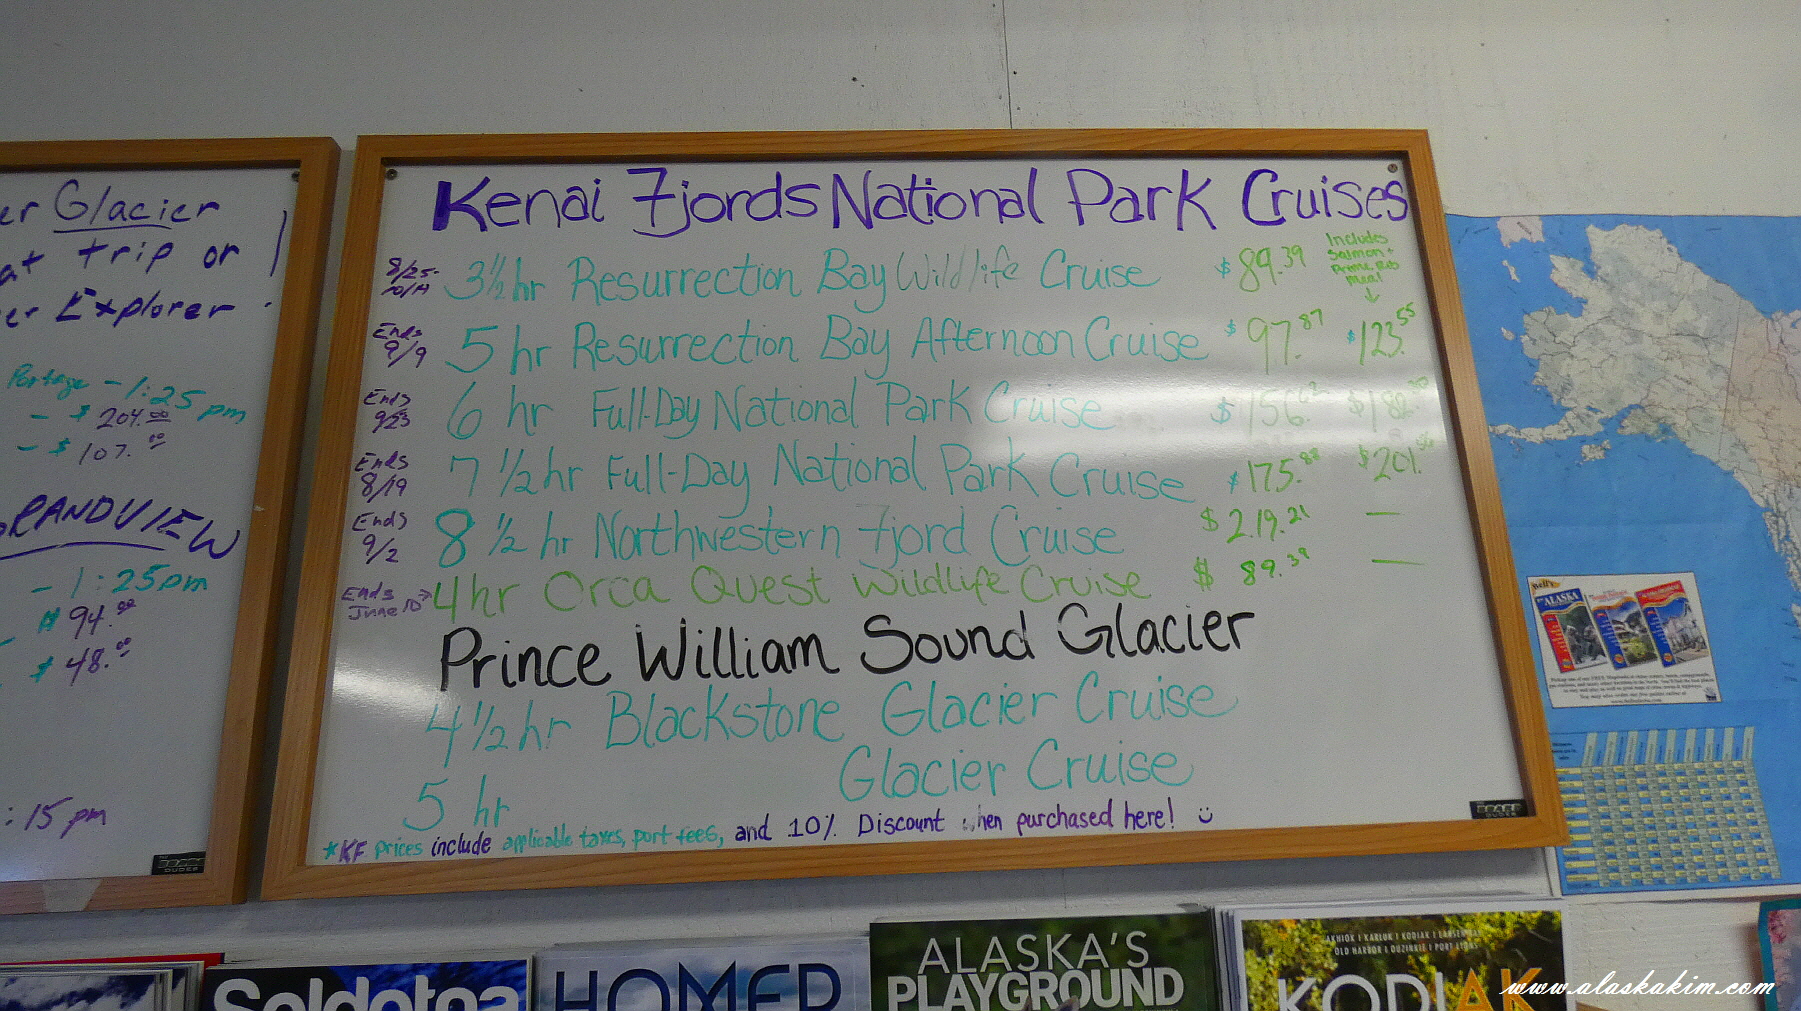 er Glacier
at trip or
er Explorer
Portage - 1:25 pm
- $ 204.00
- $ 107.00
RANDVIEW
- 1:25 pm
$ 94.00
$ 48.00
:15 pm
Kenai Fjords National Park Cruises
Includes
Salmon +
Prime Rib
Meal
8/25- 3 1/2 hr Resurrection Bay Wildlife Cruise $89.39
Ends 9/9 5 hr Resurrection Bay Afternoon Cruise $97.87 $123.55
Ends 9/23 6 hr Full-Day National Park Cruise $156.
Ends 8/19 7 1/2 hr Full-Day National Park Cruise $175.88 $201.
Ends 9/2 8 1/2 hr Northwestern Fjord Cruise $219.21 —
Ends June 10 → 4 hr Orca Quest Wildlife Cruise $ 89.39 —
Prince William Sound Glacier
4 1/2 hr Blackstone Glacier Cruise
5 hr Glacier Cruise
*KF prices include applicable taxes, port fees, and 10% Discount when purchased here!
ALASKA
Soldotna
HOMER
ALASKA'S
PLAYGROUND
AKHIOK | KARLUK | KODIAK | LARSEN BAY
OLD HARBOR | OUZINKIE | PORT LIONS
KODIAK
www.alaskakim.com